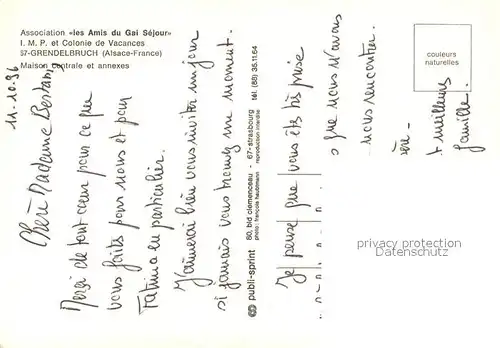 Association «les Amis du Gai Séjour»
I. M. P. et Colonie de Vacances
67-GRENDELBRUCH (Alsace-France)
Maison centrale et annexes
11.10.96
Chère Madame
Merci de tout cœur pour ce que
vous faits pour nous et pour
Fatima en particulier.
J'aimerai bien vous inviter un jour
si jamais vous trouvez un moment.
publi-sprint 80, bld clemenceau - 67-strasbourg tél. (88) 35.11.64
photo : françois haudemann reproduction interdite
Je pense que vous êts très prise
que nous n'avons
nous rencontrer.
meilleurs
famille.
couleurs
naturelles
privacy protection
DatenSchutz